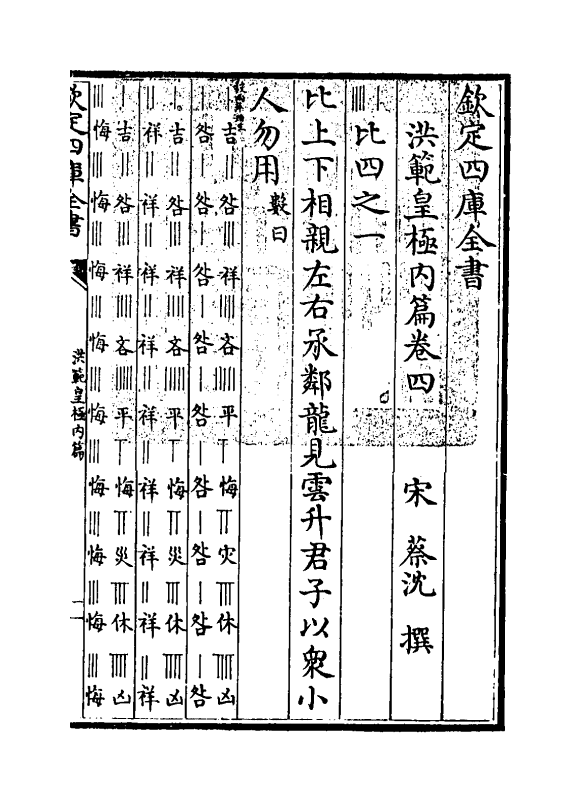 欽定四庫全書
洪範皇極内篇卷四 宋 蔡沈 撰
|||| | 比四之一
比上下相親左右承鄰龍見雲升君子以衆小
人勿用 數曰
| 吉 || 咎 ||| 祥 |||| 吝 ||||| 平 丅 悔 𝍧 灾 𝍨 休 𝍩 凶
| 咎 | 咎 | 咎 | 咎 | 咎 | 咎 | 咎 | 咎 | 咎
| 吉 || 咎 ||| 祥 |||| 吝 ||||| 平 丅 悔 𝍧 災 𝍨 休 𝍩 凶
|| 祥 || 祥 || 祥 || 祥 || 祥 || 祥 || 祥 || 祥 || 祥
| 吉 || 咎 ||| 祥 |||| 吝 ||||| 平 丅 悔 𝍧 災 𝍨 休 𝍩 凶
||| 悔 ||| 悔 ||| 悔 ||| 悔 ||| 悔 ||| 悔 ||| 悔 ||| 悔 ||| 悔
欽定四庫全書 洪範皇極内篇 一